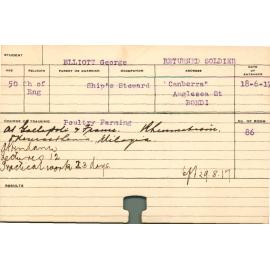 STUDENT
ELLIOTT George RETURNED SOLDIER
AGE RELIGION PARENT OR GUARDIAN OCCUPATION ADDRESS DATE OF ENTRANCE
50 Ch of Ship's Steward "Canberra" 18-6-17
Eng Anglesea St
BONDI
COURSE OF TRAINING Poultry Farming No. OF ROOM
At Gallipoli & France. Rheumatism, 86
Attendance
Lectures 12
Practical work 23 days.
29.8.17
RESULTS